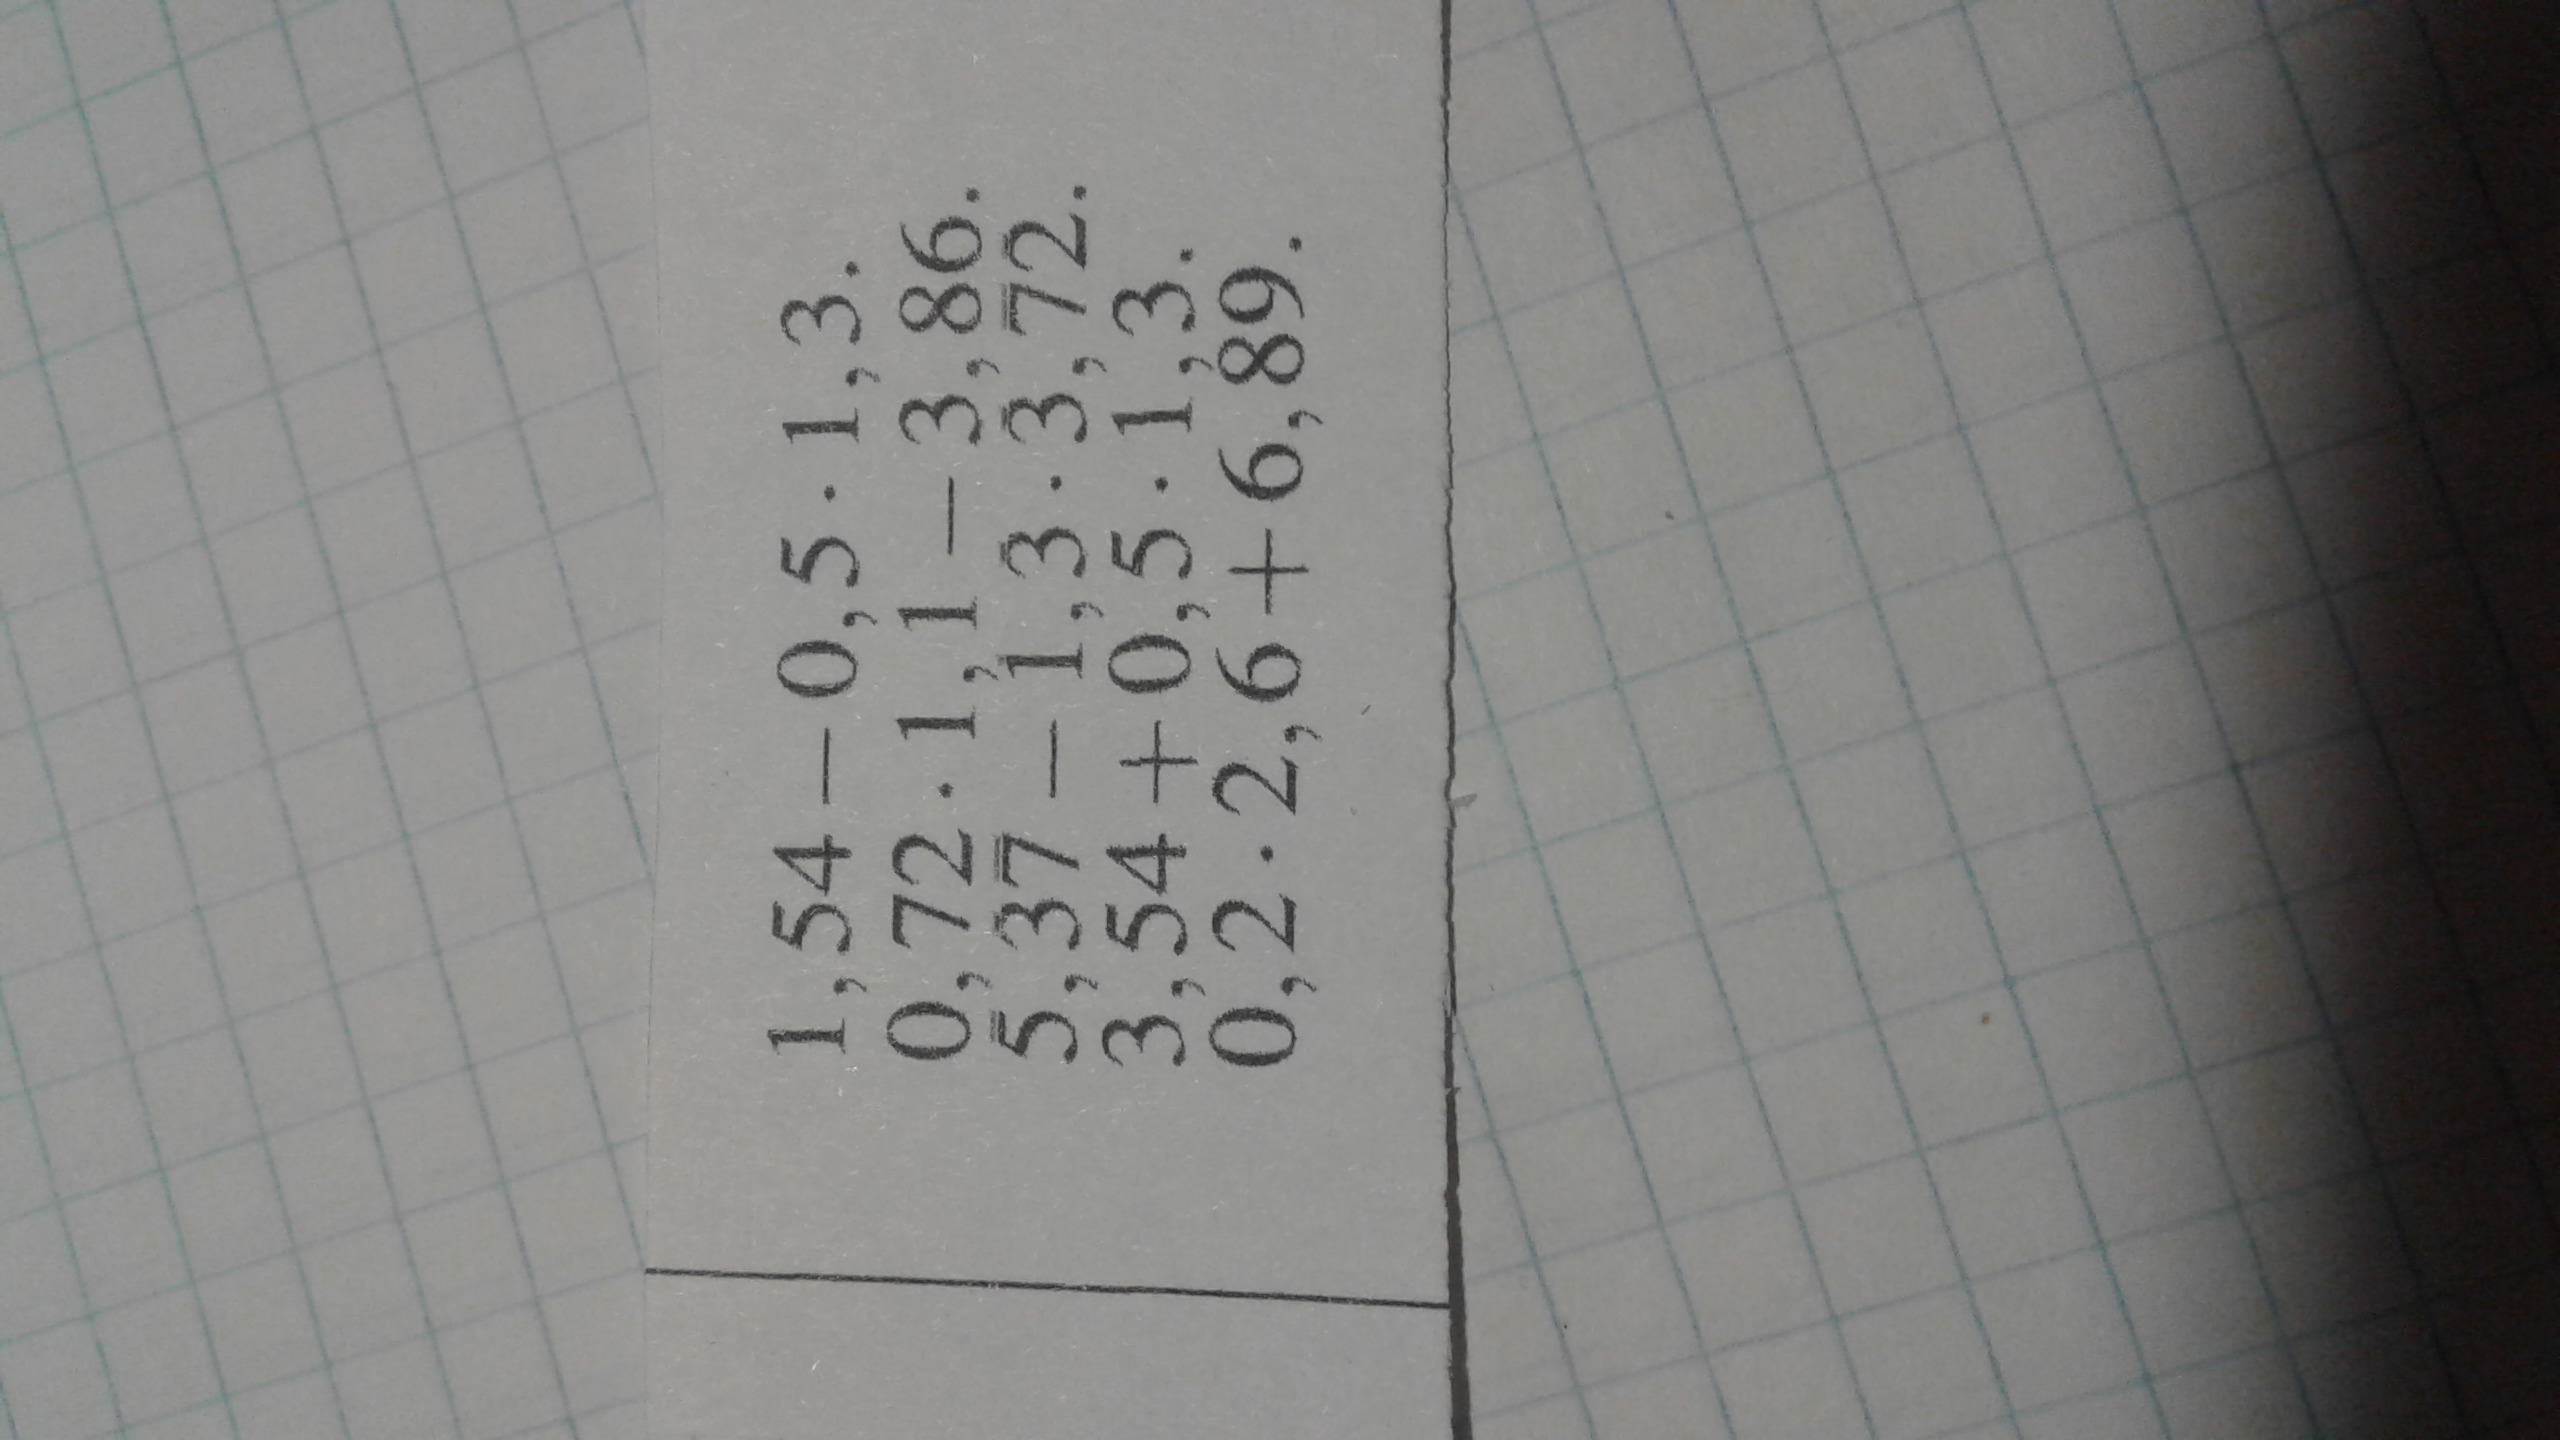 1,54 − 0,5 · 1,3.
0,72 · 1,1 − 3,86.
5,37 − 1,3 · 3,72.
3,54 + 0,5 · 1,3.
0,2 · 2,6 + 6,89.